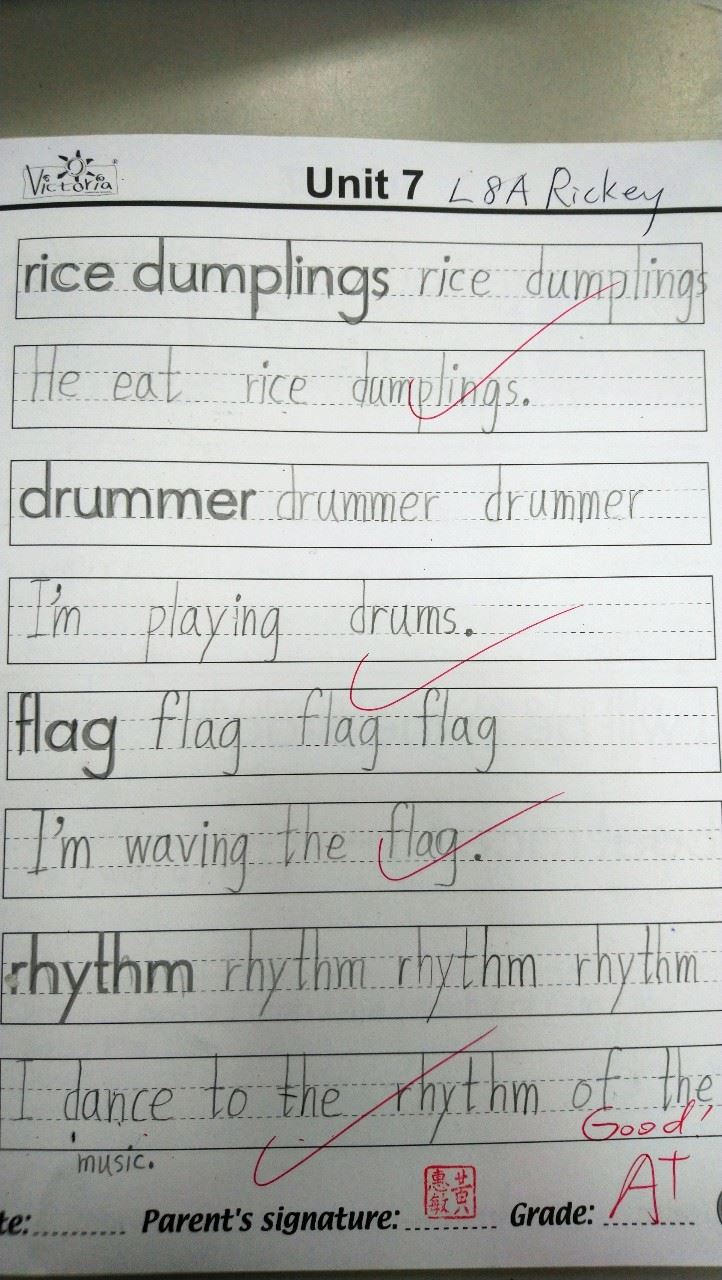 Victoria
Unit 7 L8A Rickey
rice dumplings rice dumplings
He eat rice dumplings.
drummer drummer drummer
I'm playing drums.
flag flag flag flag
I'm waving the flag.
rhythm rhythm rhythm rhythm
I dance to the rhythm of the
music.
Good!
te: Parent's signature: 黃惠敏 Grade: A+